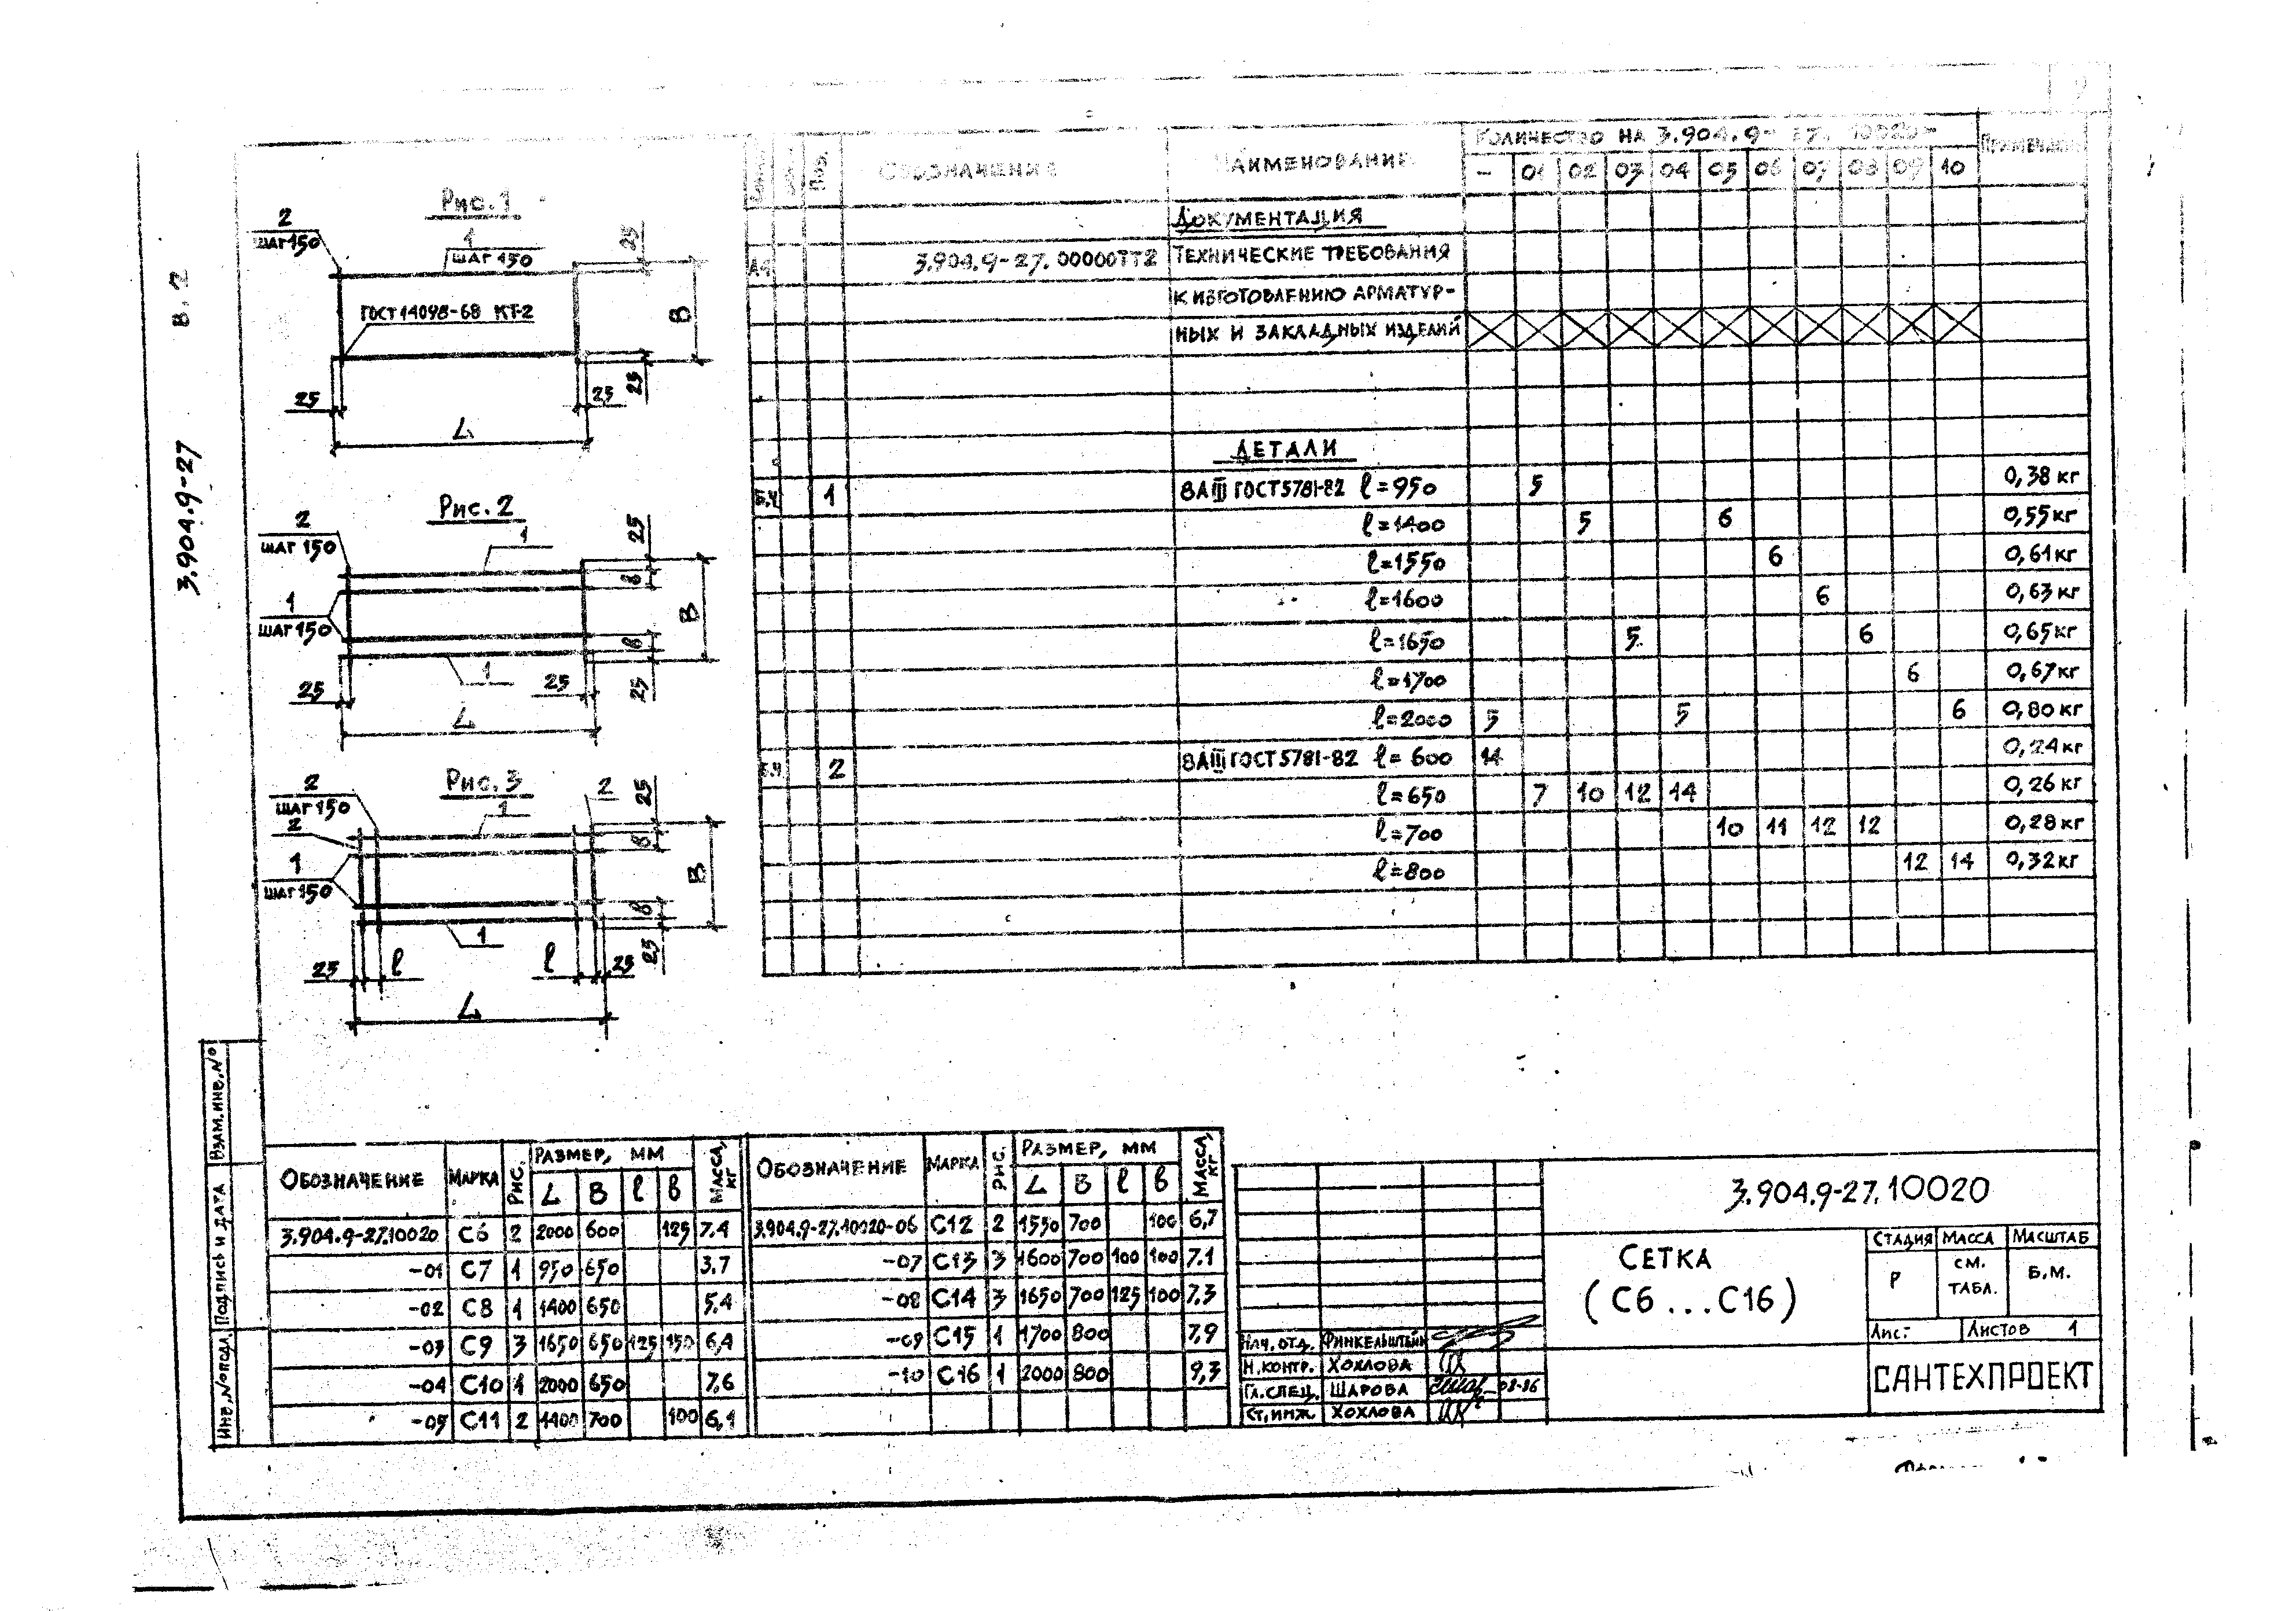 В.2
3.904.9-27
Рис.1
2
ШАГ 150
1
ШАГ 150
25
ГОСТ 14098-68 КТ-2
В
25
25
25
L
Рис.2
2
ШАГ 150
1
25
в
1
ШАГ 150
В
в
1
25
25
25
L
Рис.3
2
ШАГ 150
2
1
2
25
в
1
ШАГ 150
В
в
1
25
25
ℓ
ℓ
25
L
Поз. ОБОЗНАЧЕНИЕ НАИМЕНОВАНИЕ КОЛИЧЕСТВО НА 3.904.9-27.10020-
- 01 02 03 04 05 06 07 08 09 10
ДОКУМЕНТАЦИЯ
А4 3.904.9-27.00000ТТ2 ТЕХНИЧЕСКИЕ ТРЕБОВАНИЯ
К ИЗГОТОВЛЕНИЮ АРМАТУР-
НЫХ И ЗАКЛАДНЫХ ИЗДЕЛИЙ
ДЕТАЛИ
Б.Ч 1 8АIII ГОСТ 5781-82 ℓ=950 5 0,38 кг
ℓ=1400 5 6 0,55 кг
ℓ=1550 6 0,61 кг
ℓ=1600 6 0,63 кг
ℓ=1650 5 6 0,65 кг
ℓ=1700 6 0,67 кг
ℓ=2000 5 5 6 0,80 кг
Б.Ч. 2 8АIII ГОСТ 5781-82 ℓ=600 14 0,24 кг
ℓ=650 7 10 12 14 0,26 кг
ℓ=700 10 11 12 12 0,28 кг
ℓ=800 12 14 0,32 кг
ОБОЗНАЧЕНИЕ МАРКА РИС. РАЗМЕР, ММ МАССА, КГ
L В ℓ в
3.904.9-27.10020 С6 2 2000 600 125 7.4
-01 С7 1 950 650 3.7
-02 С8 1 1400 650 5.4
-03 С9 3 1650 650 125 150 6,4
-04 С10 1 2000 650 7,6
-05 С11 2 1400 700 100 6,1
ОБОЗНАЧЕНИЕ МАРКА РИС. РАЗМЕР, ММ МАССА, КГ
L В ℓ в
3.904.9-27.10020-06 С12 2 1550 700 100 6,7
-07 С13 3 1600 700 100 100 7.1
-08 С14 3 1650 700 125 100 7.3
-09 С15 1 1700 800 7,9
-10 С16 1 2000 800 9,3
3.904.9-27.10020
СЕТКА
(С6...С16)
СТАДИЯ МАССА МАСШТАБ
Р СМ. ТАБЛ. Б.М.
ЛИСТОВ 1
САНТЕХПРОЕКТ
НАЧ. ОТД. ФИНКЕЛЬШТЕЙН
Н.КОНТР. ХОХЛОВА
ГЛ.СПЕЦ. ШАРОВА 08-86
СТ.ИНЖ. ХОХЛОВА
ВЗАМ.ИНВ.№
ПОДПИСЬ И ДАТА
ИНВ.№ПОДЛ